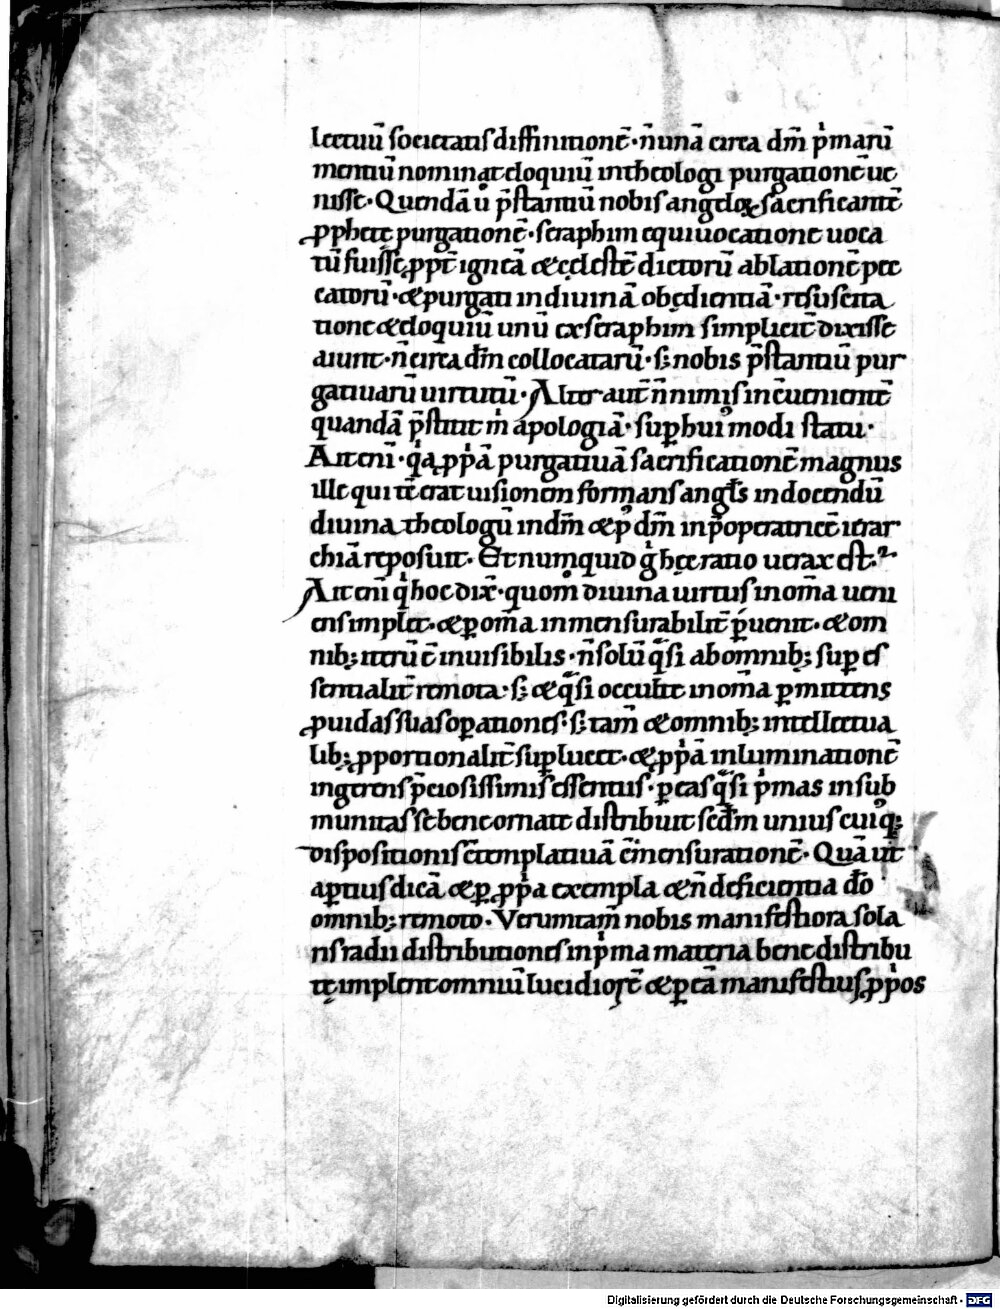 lectuū societatis diffinitionē · n̄ unā circa dm̄ pͥmarū
mentiū nominat eloquiū in theologi purgationē ue
nisse · Quendā ū p̄stantiū nobis angeloꝝ sacrificantē
ꝓphetę purgationē · seraphim equiuocatione uoca
tū fuisse ꝓpt̄ igneā & cęlestē dictorū ablationē pec
catorū · & purgati in diuinā obędientiā · resuscita
tione & eloquiū unū ex seraphim simplicit̄ dixisse
aiunt · n̄ circa dm̄ collocatarū · s; nobis p̄stantiū pur
gatiuarū uirtutū · Alter aut̄ n̄ nimis incuenientē
quandā p̄stitit m̄ apologiā · suꝑ huiꝰmodi statu ·
Ait eni̅ · qͣ ꝓpͥā purgatiuā sacrificationē magnus
ille qui tē erat uisionem formans angl̄s in docendū
diuina theologū in dm̄ & p dm̄ inp̄operatricē ierar
chiā reposuit · Et numquid gͥ hęc ratio uerax est ·
Ait eni̅ qͥ hoc dix̄ · quom̊ diuina uirtus in om̄a ueni
ens implet · & ꝑ om̄a inmensurabilit̄ ꝑuenit · & om
nib; iterū ē inuisibilis · n̄ solū qͣsi ab omnib; suꝑ es
sentialit̄ remota · s; & qͣsi occulte in om̄a ꝑmittens
ꝓuidas suas oꝑationes · s; tam̄ & omnib; intellectua
lib; ꝓportionalit̄ suꝑlucet · & ꝓpͥā inluminationē
ingerens p̄ciosissimis essentiis · ꝑ eas qͣsi pͥmas in sub
munitas se bene ornate distribuit sed̄m unius cuiꝰq;
dispositionis cōtemplatiuā cōmensurationē · Quā ut
aptius dicā & ꝑ ꝓpͥa exempla & n̄ deficientia dō
omnib; remoto · Verumtam̄ nobis manifestiora sola
ris radii distributiones in pͥma materia bene distribu
tę implent omniū lucidiorē & ꝑ eā manifestius ꝓpͥos
Digitalisierung gefördert durch die Deutsche Forschungsgemeinschaft - DFG